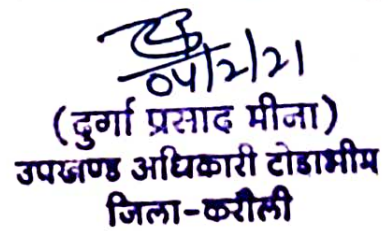 04/2/21
(दुर्गा प्रसाद मीना)
उपखण्ड अधिकारी टोडाभीम
जिला-करौली